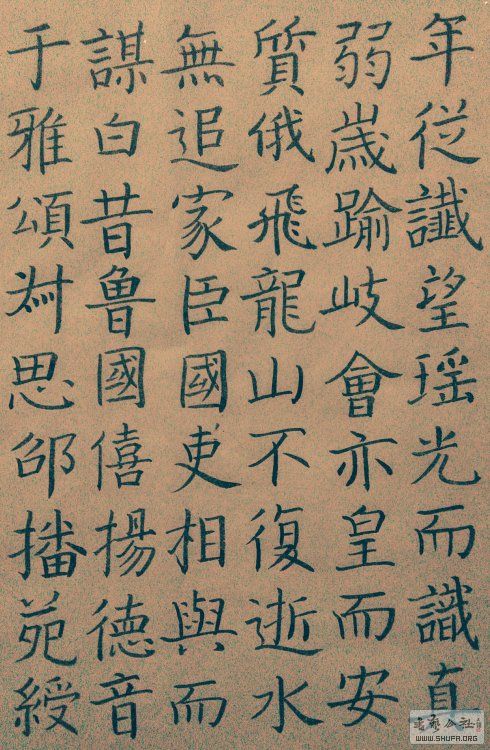 年従讖望瑶光而識直
弱歲踰岐會亦皇而安
質俄飛龍山不復逝水
無追家臣國吏相與而
謀白昔魯國僖揚德音
于雅頌思邵播苑綬
書藝公社
WWW.SHUFA.ORG